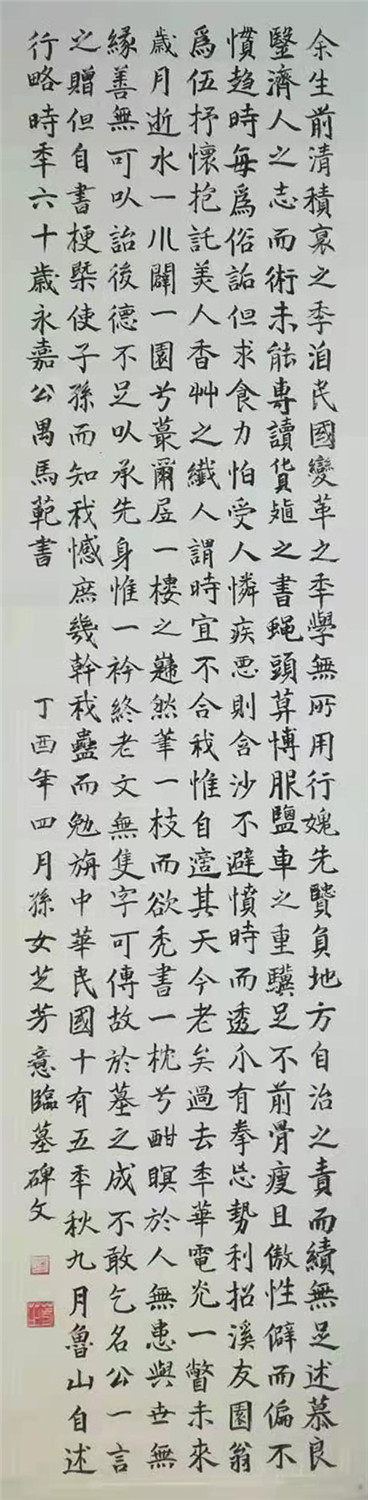 余生前清積衰之季洎民國變革之季學無所用行媿先賢負地方自治之責而績無足述慕良
毉濟人之志而術未能專讀貨殖之書蝇頭算愽服鹽車之重驥足不前骨瘦且傲性僻而偏不
慣趋時每為俗詬但求食力怕受人憐疾惡則含沙不避憤時而透爪有拳忘勢利招溪友園翁
為伍抒懷抱託美人香艸之纖人謂時宜不合我惟自適其天今老矣過去季華電光一瞥未來
歲月逝水一川闢一園兮蕞爾居一樓之巋然筆一枝而欲禿書一枕兮酣瞑於人無患與世無
緣善無可以詒後德不足以承先身惟一衿終老文無隻字可傳故於墓之成不敢乞名公一言
之贈但自書梗槩使子孫而知我憾庶幾幹我蠱而勉旃中華民國十有五季秋九月魯山自述
行略時季六十歲永嘉公禺馬範書
丁酉年四月孫女芝芳意臨墓碑文